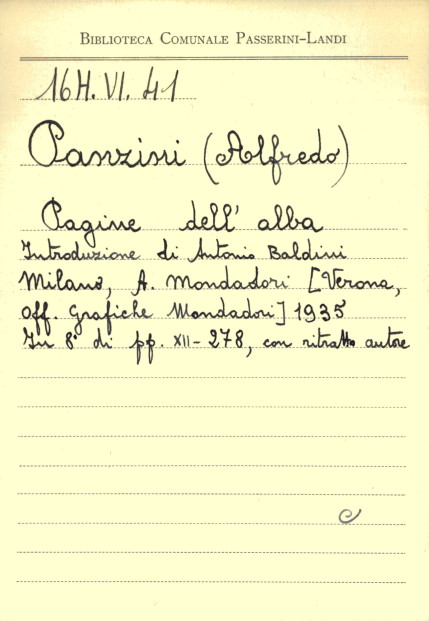 BIBLIOTECA COMUNALE PASSERINI-LANDI
16H.VI.41
Panzini (Alfredo)
Pagine dell' alba
Introduzione di Antonio Baldini
Milano, A. Mondadori [Verona,
Off. Grafiche Mondadori] 1935
In 8° di pp. XII-278, con ritratto autore